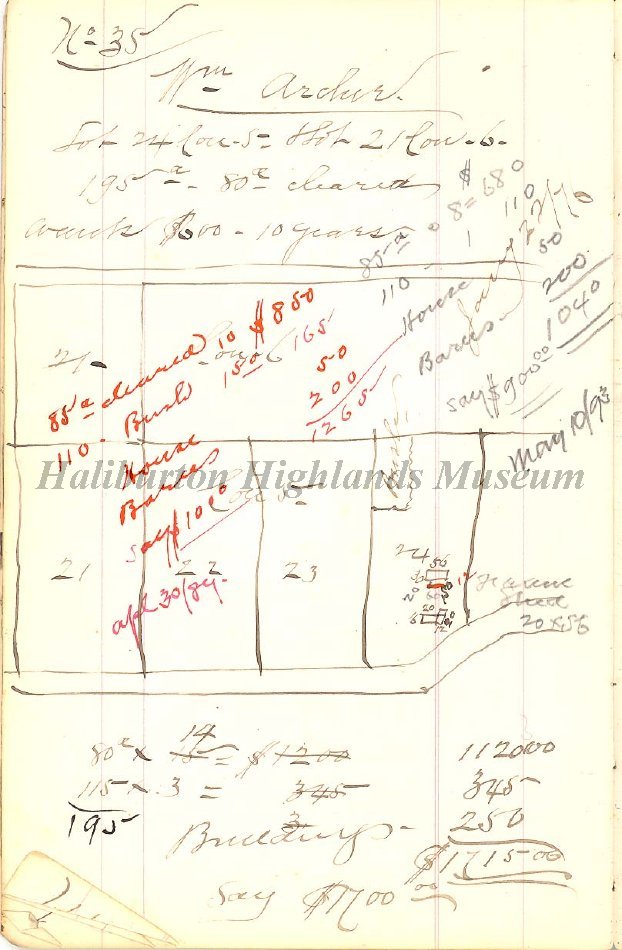 No. 35
Wm Archer.
Lot 24 Con. 5 & Lot 21 Con. 6.
195 a - 80 a cleared
wants $600 - 10 years
85 a @ 8 = $680
110 - 1 110
House 50
Barns 200
1040
say $900.00
May 10/93
85 a cleared 10 $850
110 - Bush 1.50 165
House 50
Barns 200
1265
say $1000
Apl 30/84.
21
Con 6
Con 5
Bush
21
22
23
24
56
20
12
shed
20 x 56
80 a x 15 14 = $1200 1120.00
115 x 3 = 345 345
195 Buildings - 250
$1715.00
Say $1700.00
Haliburton Highlands Museum